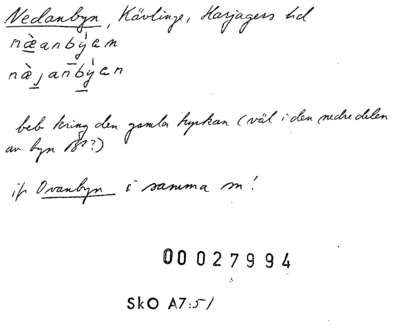 Nedanbyn, Kävlinge, Harjagers hd
næ̀anbýen
næ̀janbýen
beb kring den gamla kyrkan (väl i den nedre delen
av byn ?)
jfr Ovanbyn i samma sn!
00027994
SkO A7:51